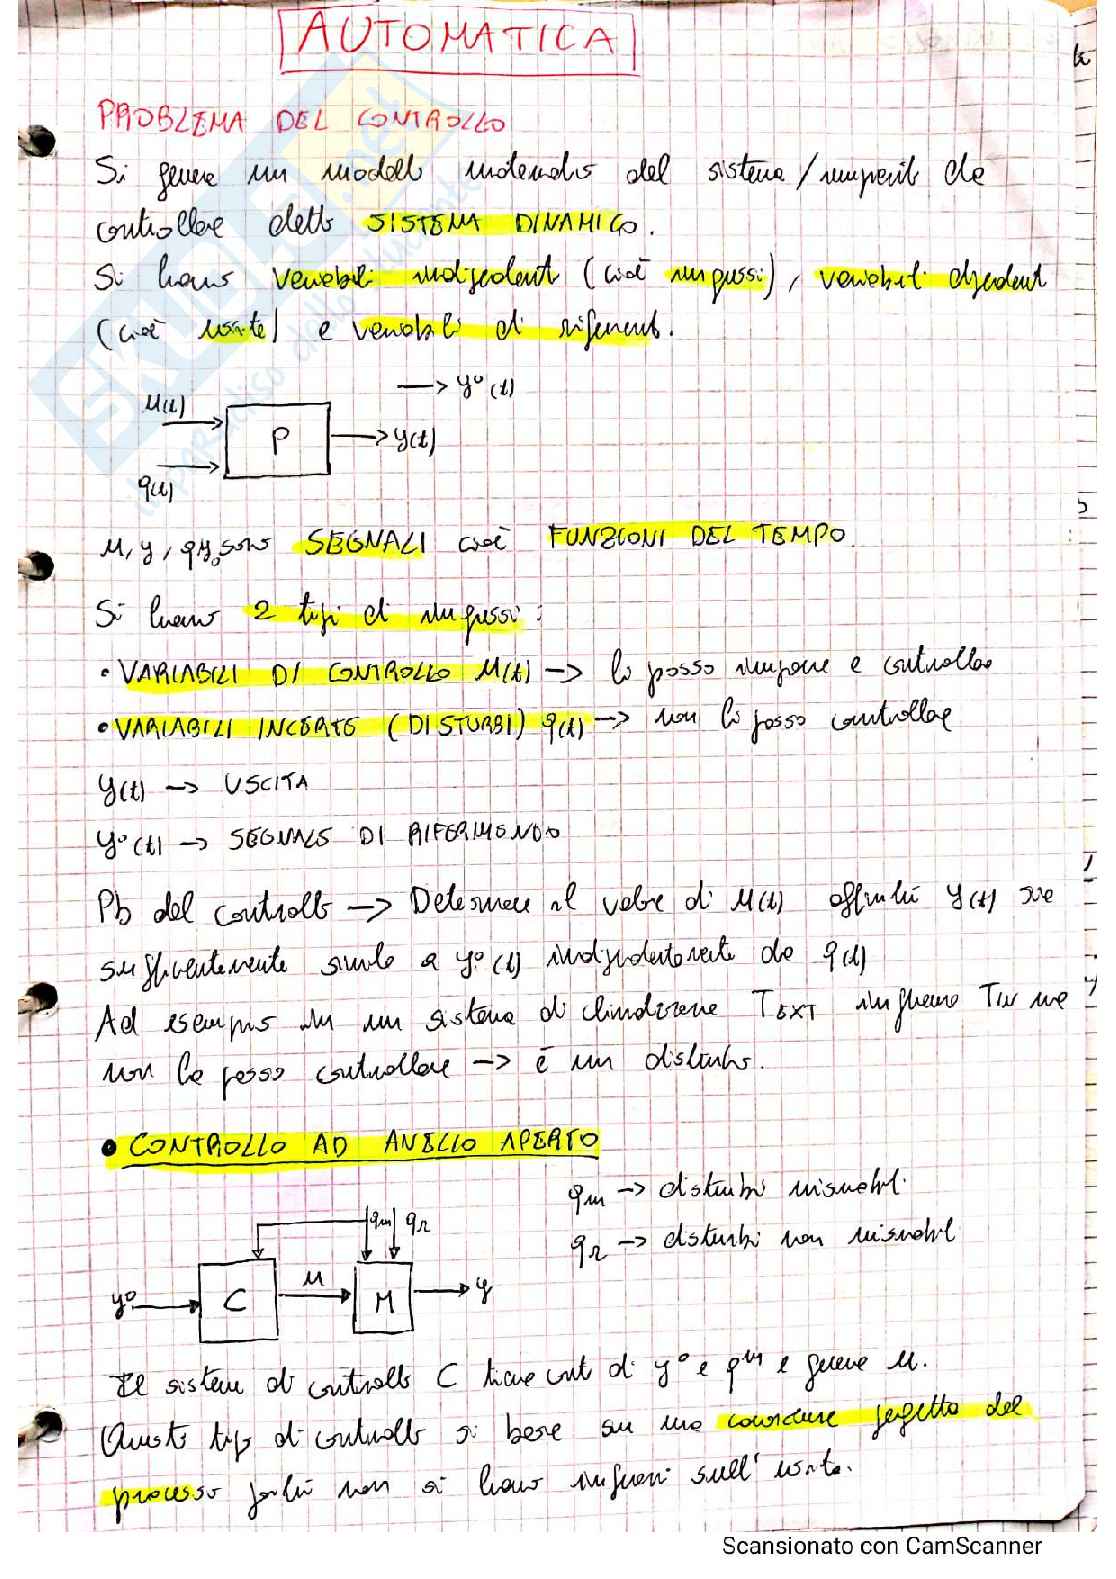 AUTOMATICA
PROBLEMA DEL CONTROLLO
Si genera un modello matematico del sistema / impianto da
controllare detto SISTEMA DINAMICO.
Si hanno variabili indipendenti (cioè ingressi), variabili dipendenti
(cioè uscite) e variabili di riferimento.
u(t) → y°(t)
P → y(t)
q(t)
u, y, q, y° sono SEGNALI cioè FUNZIONI DEL TEMPO
Si hanno 2 tipi di ingressi:
• VARIABILI DI CONTROLLO u(t) → lo posso imporre e controllare
• VARIABILI INCERTE (DISTURBI) q(t) → non lo posso controllare
y(t) → USCITA
y°(t) → SEGNALE DI RIFERIMENTO
Pb del controllo → Determinare il valore di u(t) affinché y(t) sia
sufficientemente simile a y°(t) indipendentemente da q(t)
Ad esempio in un sistema di climatizzazione TEXT influenza TIN ma
non la posso controllare → è un disturbo.
• CONTROLLO AD ANELLO APERTO
qm → disturbi misurabili
qr → disturbi non misurabili
qm qr
y° C u M y
Il sistema di controllo C tiene conto di y° e qm e genera u.
Questo tipo di controllo si basa su una conoscenza perfetta del
processo poiché non si hanno info sull'uscita.
Scansionato con CamScanner